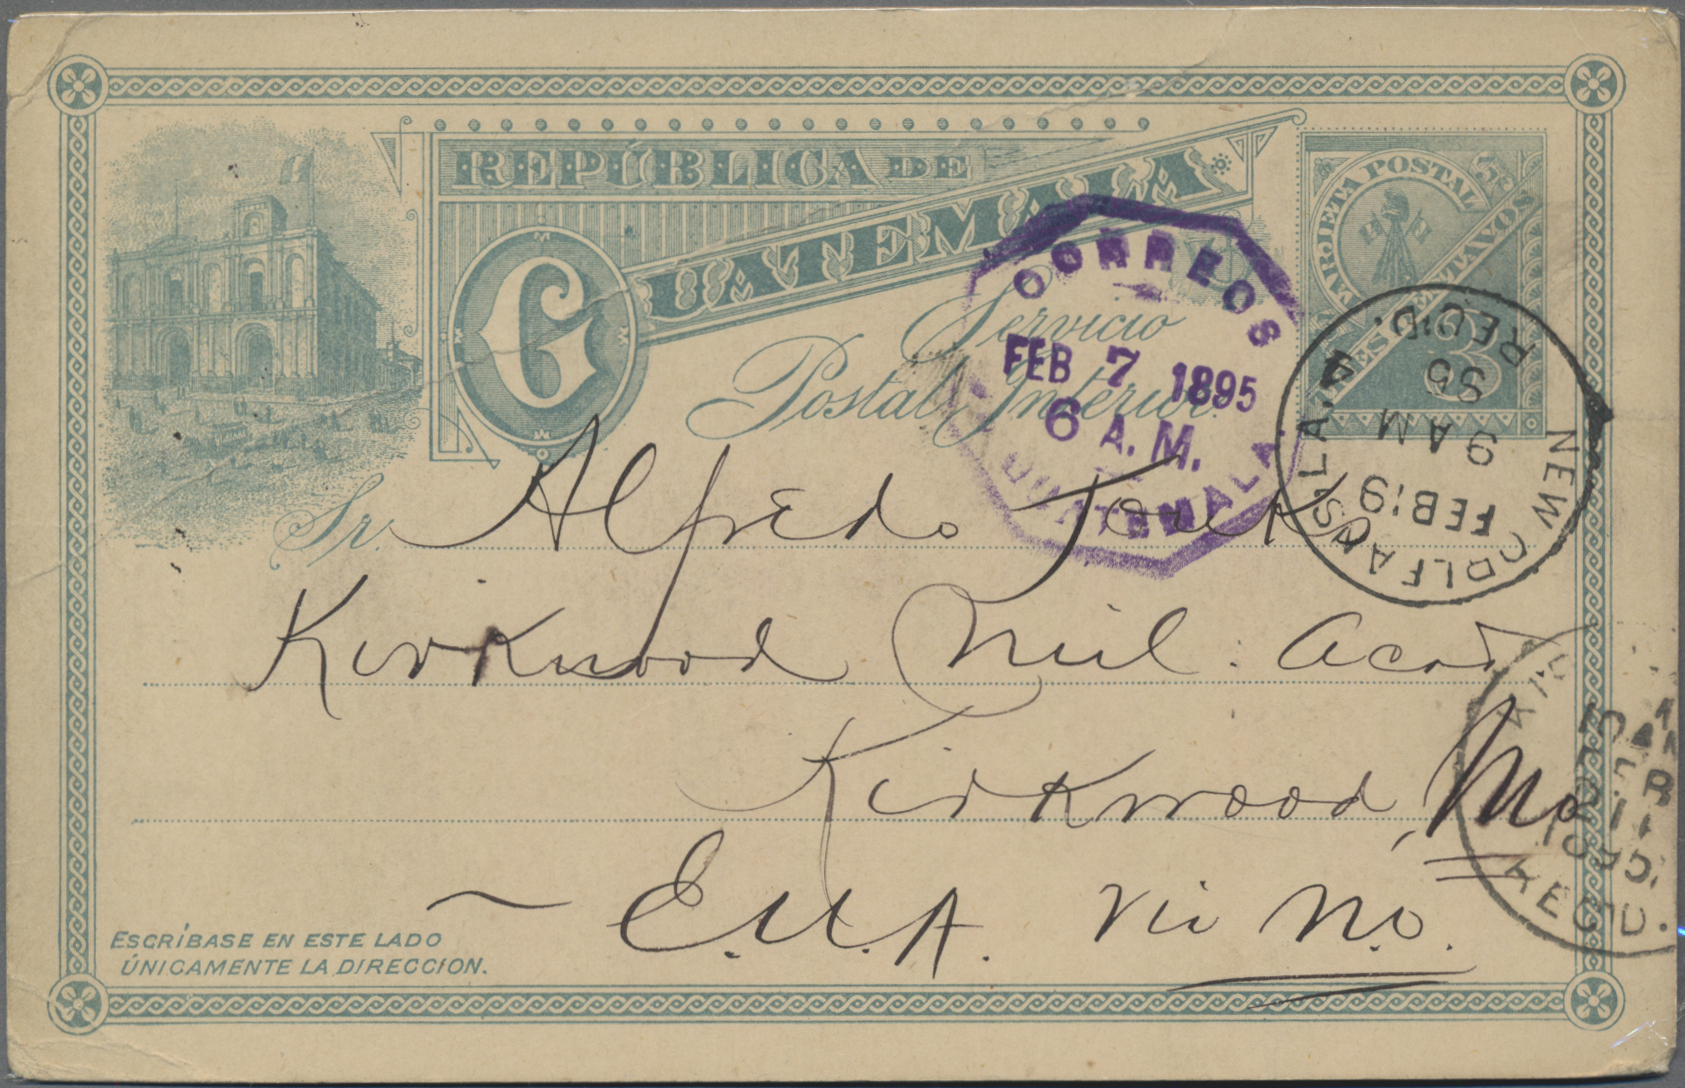 REPÚBLICA DE
GUATEMALA
Servicio
Postal Interior.
TARJETA POSTAL
TRES CENTAVOS
3
CORREOS
FEB 7 1895
6 A.M.
GUATEMALA.
NEW ORLEANS, LA.
FEB 19
9 AM
95
REC'D.
4
Sr. Alfredo
Kirkwood Mil. Acad
Kirkwood, Mo
~ E.U.A. via N.O.
10 AM
FEB
REC'D.
ESCRÍBASE EN ESTE LADO
ÚNICAMENTE LA DIRECCION.